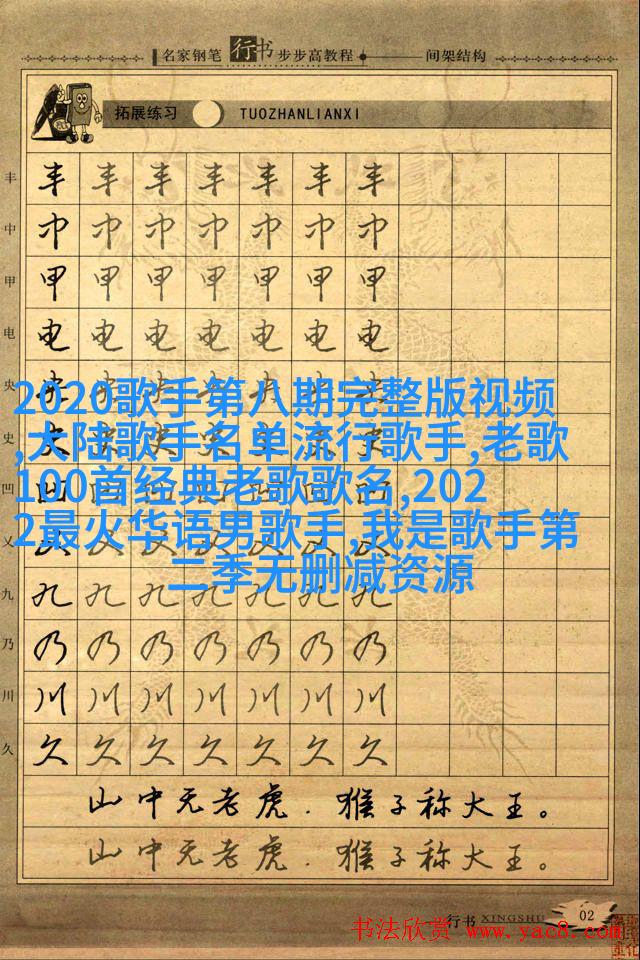 名家钢笔行书步步高教程 间架结构
拓展练习 TUOZHANLIANXI
丰 丰 丰 丰 丰 丰 丰 丰
中 中 中 中 中 中 中 中
甲 甲 甲 甲 甲 甲 甲 甲
电 电 电 电 电 电 电 电
央
2020歌手第八期完整版视频
,大陆歌手名单流行歌手,老歌
史
100首经典老歌歌名,202
凹
2最火华语男歌手,我是歌手第
二季无删减资源
九 九 九 九 九 九 九 九
乃 乃 乃 乃 乃 乃 乃 乃
川 川 川 川 川 川 川 川
久 久 久 久 久 久 久 久
山中无老虎.猴子称大王。
山中无老虎.猴子称大王。
行书 XINGSHU 02
书法欣赏 www.yac8.com